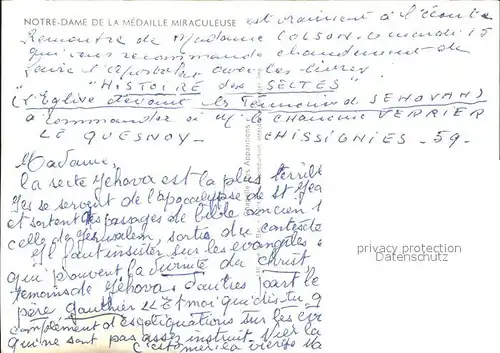 NOTRE-DAME DE LA MÉDAILLE MIRACULEUSE est vraiment à l'écoute
Rencontre de Madame COLSON le mardi 15
qui vous recommande chaudement de
l'apostolat avec les livres
"HISTOIRE des SECTES"
(l'Église devant les Témoins de JEHOVAH)
à commander à M. le Chanoine VERRIER
LE QUESNOY - GHISSIGNIES - 59 -
Madame,
la secte Jéhova est la plus terrible
se servent de l'apocalypse de St Jea
et sortent des passages de bible ancien
celle de Jérusalem, sortie du contexte
Il faut insister sur les évangiles
qui prouvent la divinité du Christ
témoins de Jéhova. D'autres part le
père Gauthier Et moi qui dis tu
complément d'Explications sur les
qui ne sont pas assez instruit. Vers la
la vierge
privacy protection
Datenschutz